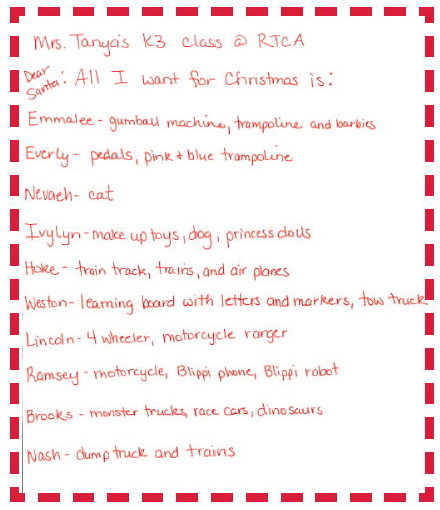 Mrs. Tanya's K3 Class @ RTCA
Dear Santa: All I want for Christmas is:
Emmalee - gumball machine, trampoline and barbies
Everly - pedals, pink + blue trampoline
Nevaeh - cat
Ivylyn - make up toys, dog, princess dolls
Hoke - train track, trains, and air planes
Weston - learning board with letters and markers, tow truck
Lincoln - 4 wheeler, motorcycle ranger
Ramsey - motorcycle, Blippi phone, Blippi robot
Brooks - monster trucks, race cars, dinosaurs
Nash - dump truck and trains